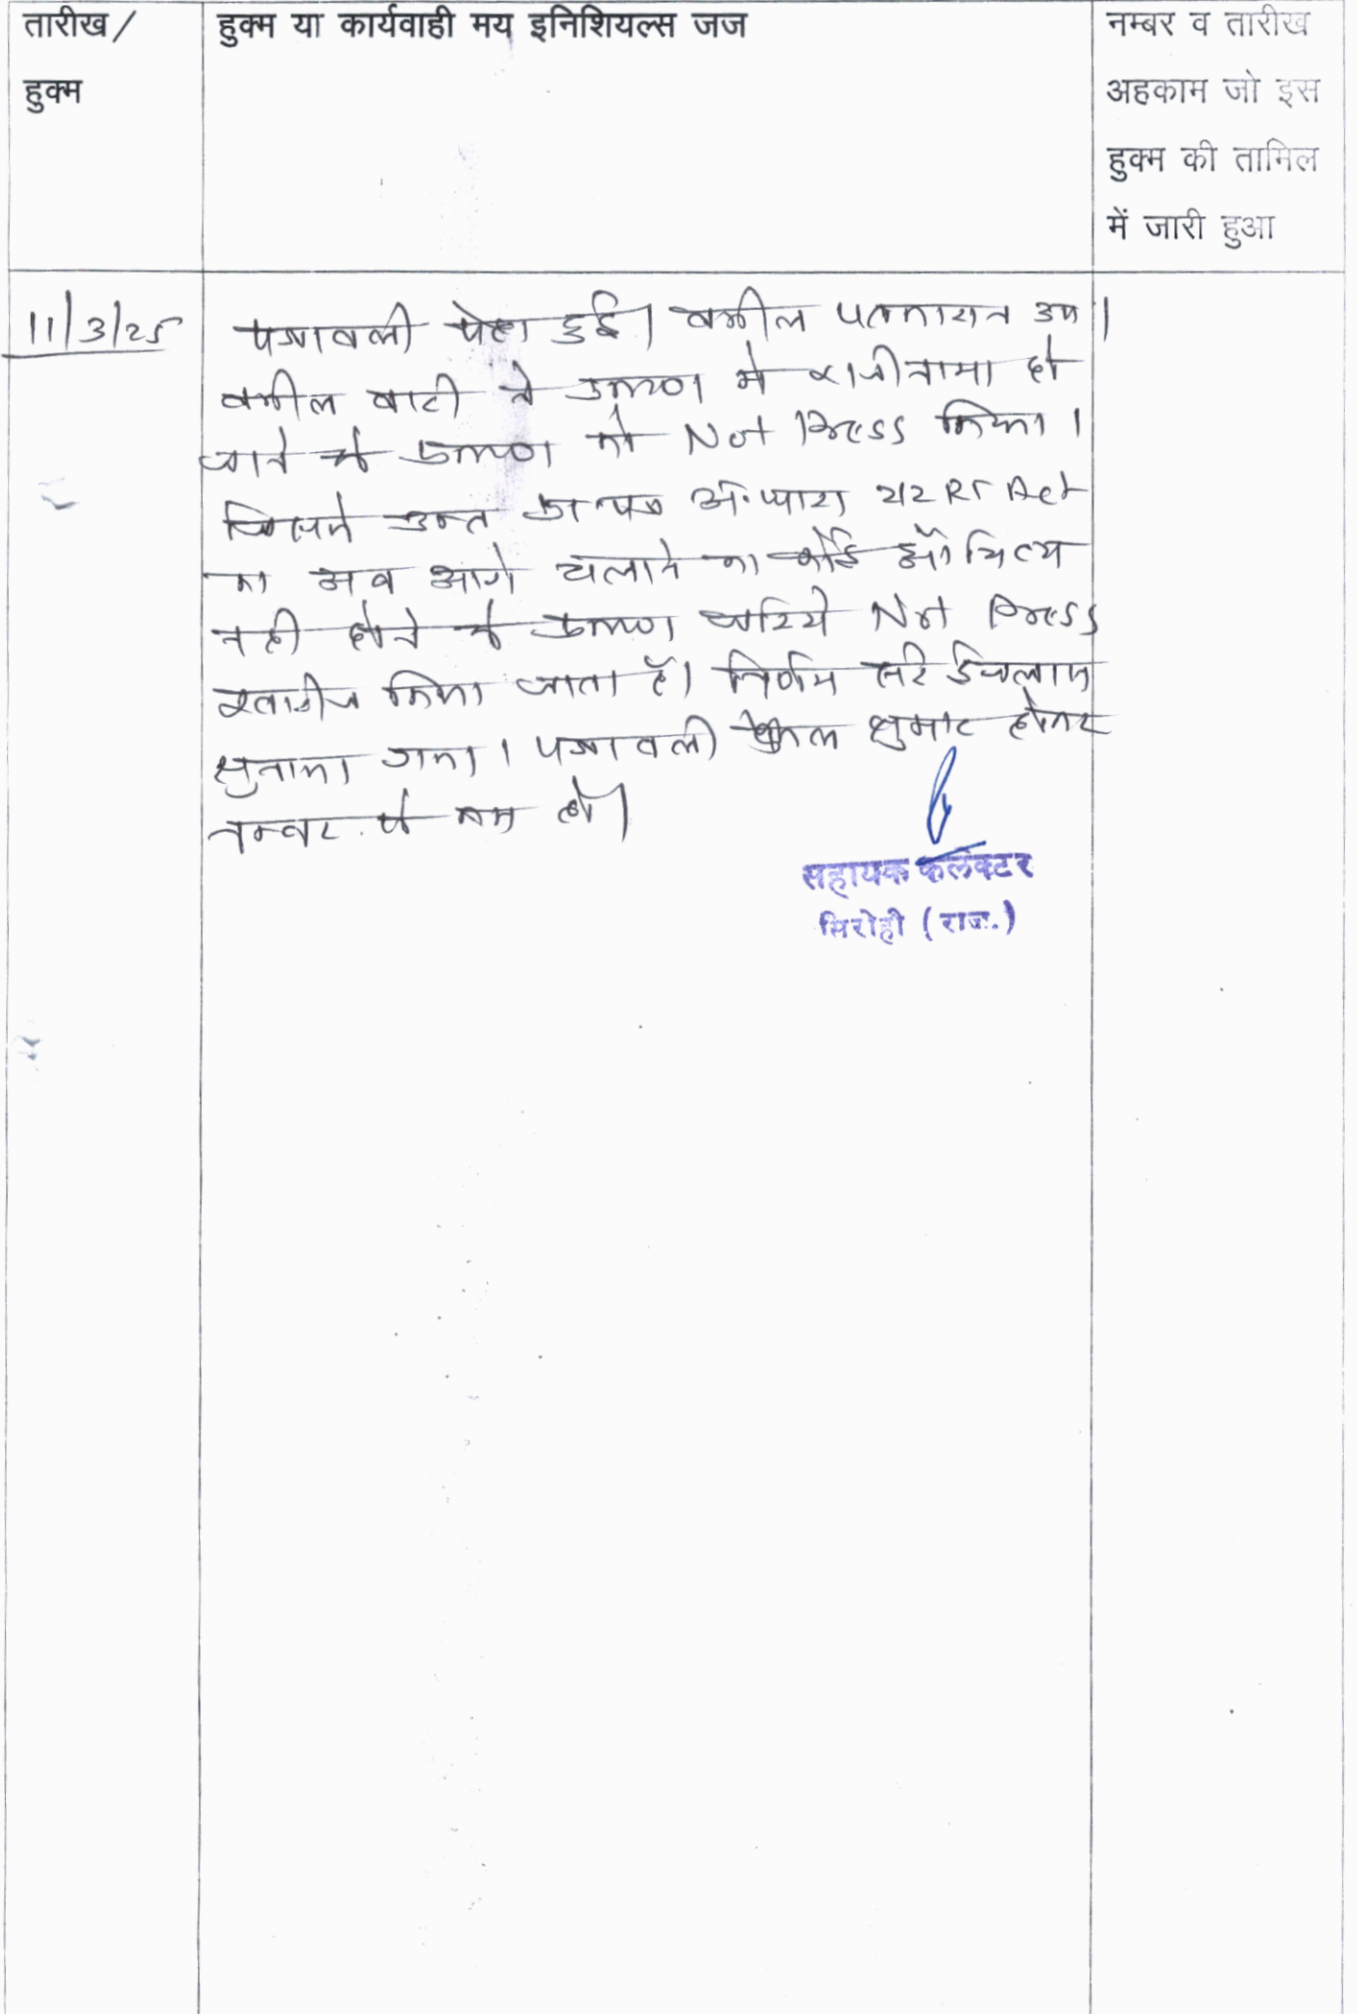 तारीख/
हुक्म
हुक्म या कार्यवाही मय इनिशियल्स जज
नम्बर व तारीख
अहकाम जो इस
हुक्म की तामिल
में जारी हुआ
11/3/25
पत्रावली पेश हुई। वकील पक्षकारान उप।
वकील वादी ने प्रकरण में राजीनामा हो
जाने से प्रकरण को Not Press किया।
जिससे उक्त प्रा पत्र अं. धारा 212 RT Act
का अब आगे चलाने का कोई औचित्य
नही होने से प्रकरण जरिये Not Press
खारीज किया जाता है। निर्णय सरे इजलास
सुनाया गया। पत्रावली फैसल शुमार होकर
नम्बर से कम हो।
सहायक कलेक्टर
सिरोही (राज.)